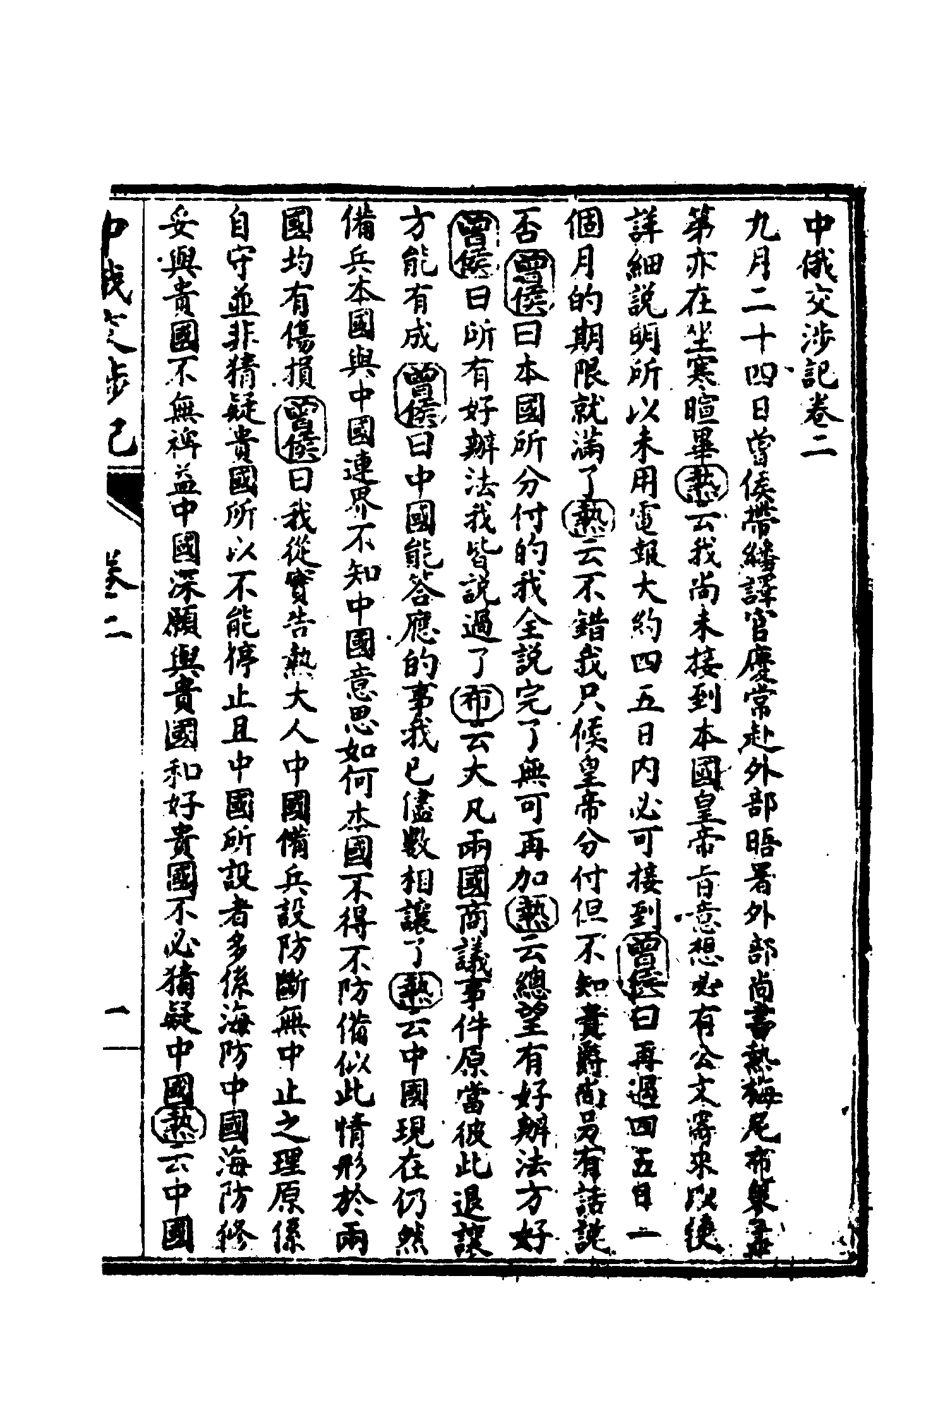 中俄交涉記卷二
九月二十四日曾侯帶繙譯官慶常赴外部晤署外部尚書熱梅尼布策孟
第亦在坐寒暄畢熱云我尚未接到本國皇帝旨意想必有公文寄來以便
詳細說明所以未用電報大約四五日內必可接到曾侯曰再過四五日一
個月的期限就滿了熱云不錯我只候皇帝分付但不知貴爵尚另有話說
否曾侯曰本國所分付的我全說完了無可再加熱云總望有好辦法方好
曾侯曰所有好辦法我皆說過了布云大凡兩國商議事件原當彼此退讓
方能有成曾侯曰中國能答應的事我已儘數相讓了熱云中國現在仍然
備兵本國與中國連界不知中國意思如何本國不得不防備似此情形於兩
國均有傷損曾侯曰我從實告熱大人中國備兵設防斷無中止之理原係
自守並非猜疑貴國所以不能停止且中國所設者多係海防中國海防修
妥與貴國不無裨益中國深願與貴國和好貴國不必猜疑中國熱云中國
中俄交涉記 卷二 一